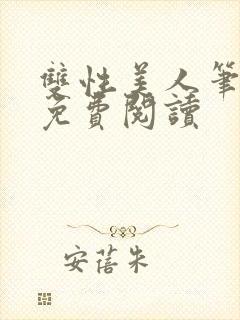 雙性美人筆
免費閱讀
安蓓朱